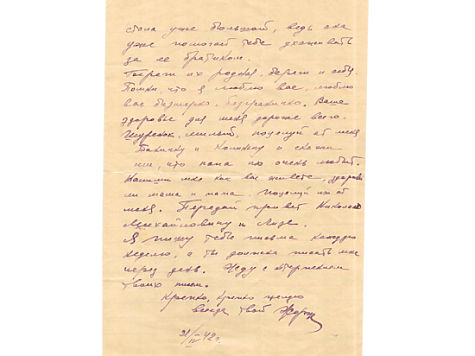 стала уже большой, ведь она
уже помогает тебе ухаживать
за ее братиком.
Береги их родная, береги и себя.
Помни, что я люблю вас, люблю
вас безмерно, безгранично. Ваше
здоровье для меня дороже всего.
милый, поцелуй от меня
и и скажи
им, что папа их очень любит.
Напиши мне как вы живете, здоровы
ли мама и папа поцелуй их от
меня. Передай привет Николаю
Михайловичу и Лизе.
Я пишу тебе письма каждую
неделю, а ты должна писать мне
через день. Жду с нетерпением
твоих писем.
Крепко, крепко целую
всегда твой
42 г.